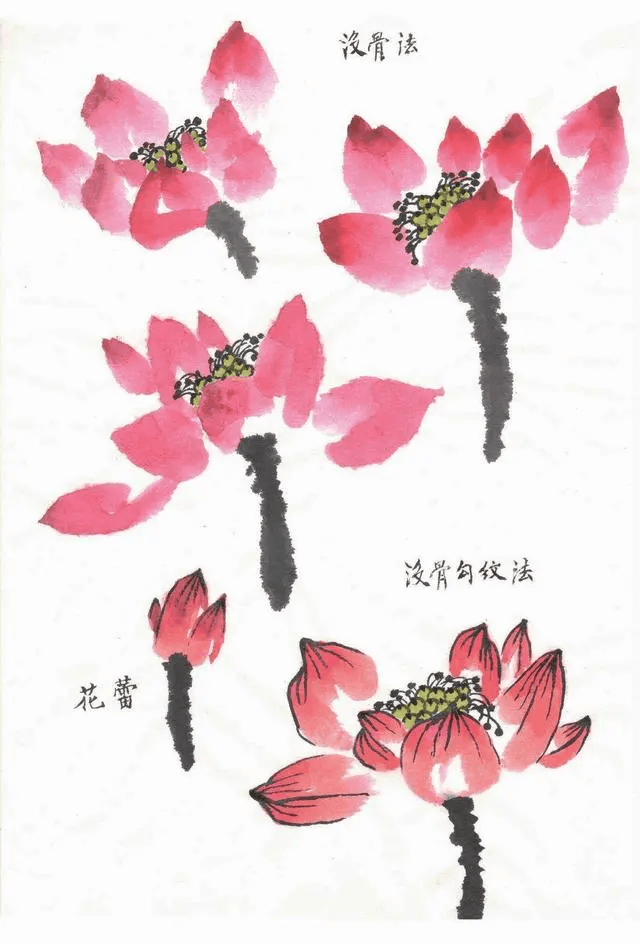 没骨法
没骨勾纹法
花蕾